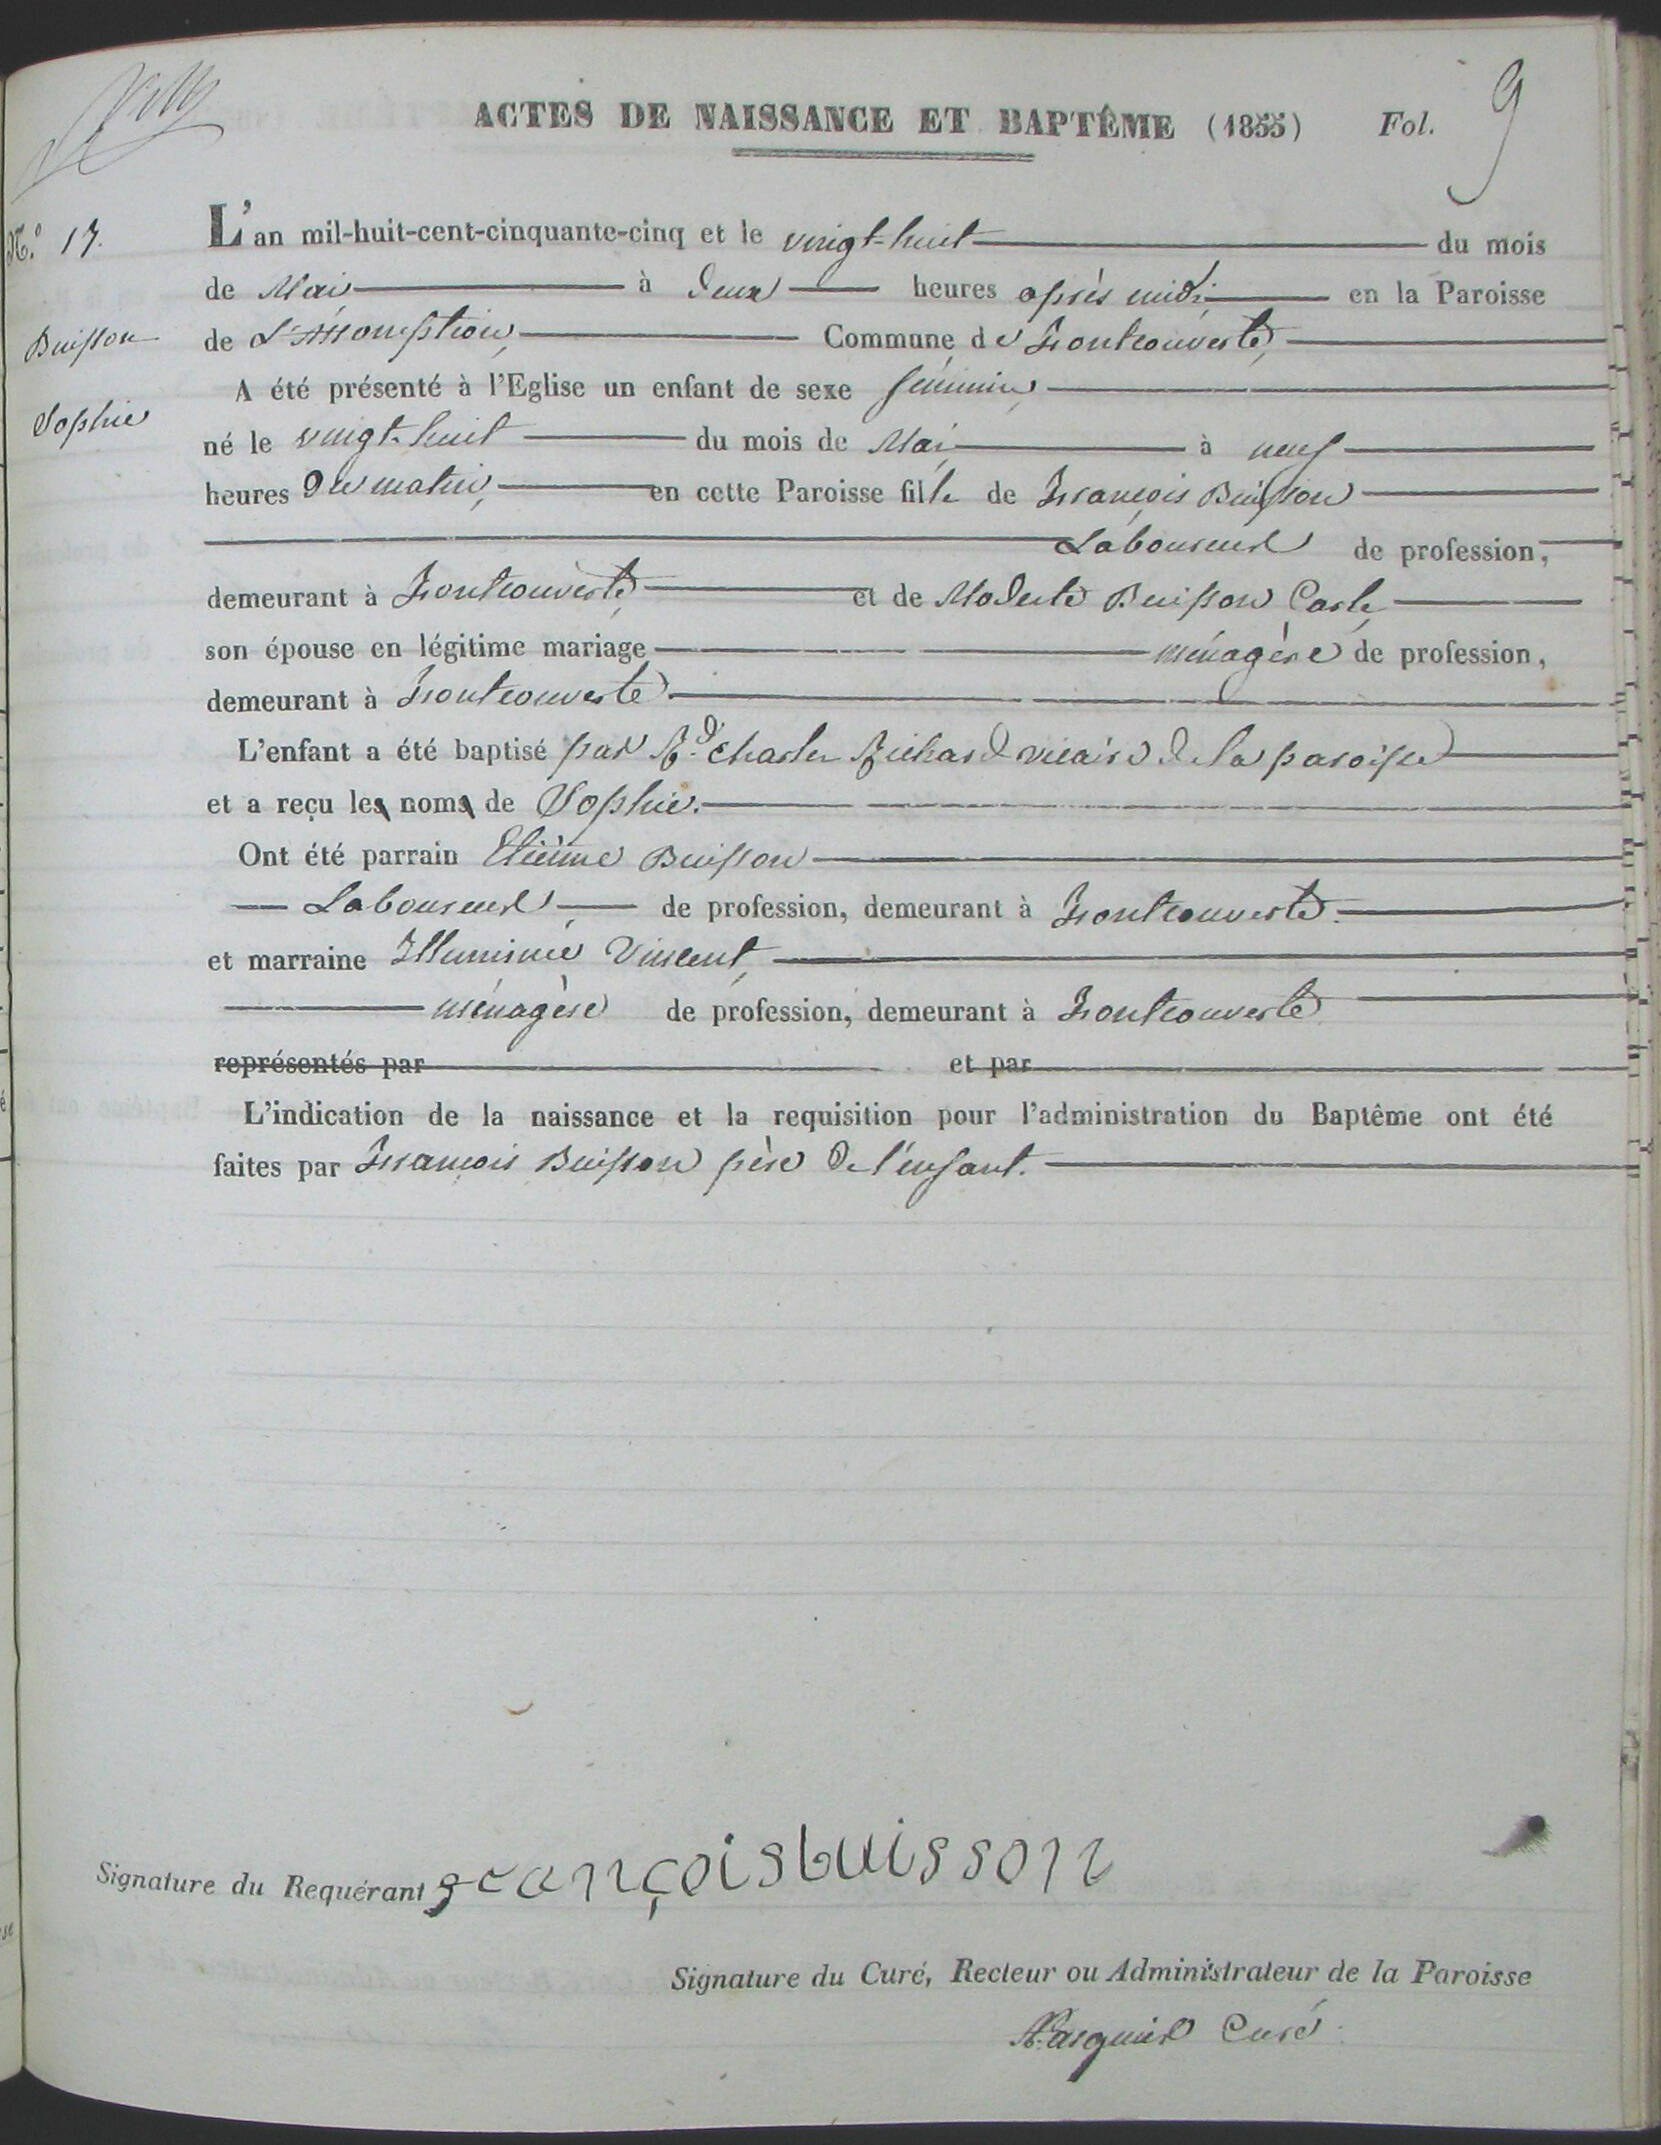 ACTES DE NAISSANCE ET BAPTÊME (1855) Fol. 9
N.º 17.
L'an mil-huit-cent-cinquante-cinq et le vingt-huit du mois
de Mai à deux heures après midi, en la Paroisse
Buisson
de L'Assomption, Commune de Fontcouverte,
A été présenté à l'Eglise un enfant de sexe féminin,
Sophie
né le vingt-huit du mois de Mai, à neuf
heures du matin, en cette Paroisse fille de François Buisson
Laboureur de profession,
demeurant à Fontcouverte, et de Modeste Buisson Carle,
son épouse en légitime mariage ménagère de profession,
demeurant à Fontcouverte.
L'enfant a été baptisé par Rd. Charles Richard vicaire de la paroisse
et a reçu les noms de Sophie.
Ont été parrain Etienne Buisson
Laboureur, de profession, demeurant à Fontcouverte.
et marraine Illuminée Vincent,
ménagère de profession, demeurant à Fontcouverte
représentés par et par
L'indication de la naissance et la requisition pour l'administration du Baptême ont été
faites par François Buisson père de l'enfant.
Signature du Requérant françois buisson
Signature du Curé, Recteur ou Administrateur de la Paroisse
Curé